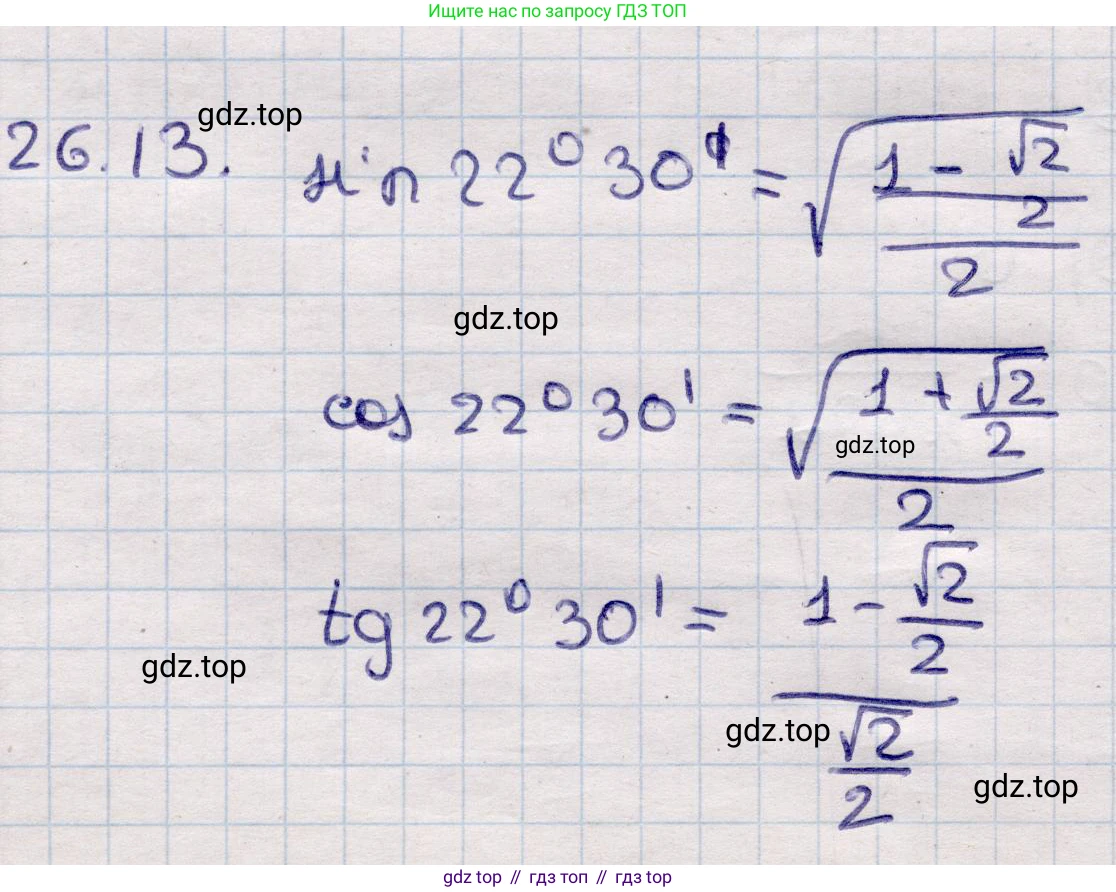 Ищите нас по запросу ГДЗ ТОП
gdz.top
26.13. sin 22⁰ 30' = √((1 - √2/2)/2)
gdz.top
cos 22⁰ 30' = √((1 + √2/2)/2)
gdz.top
tg 22⁰ 30' = (1 - √2/2)/(√2/2)
gdz.top
gdz.top
gdz.top
gdz top // гдз топ // гдз top